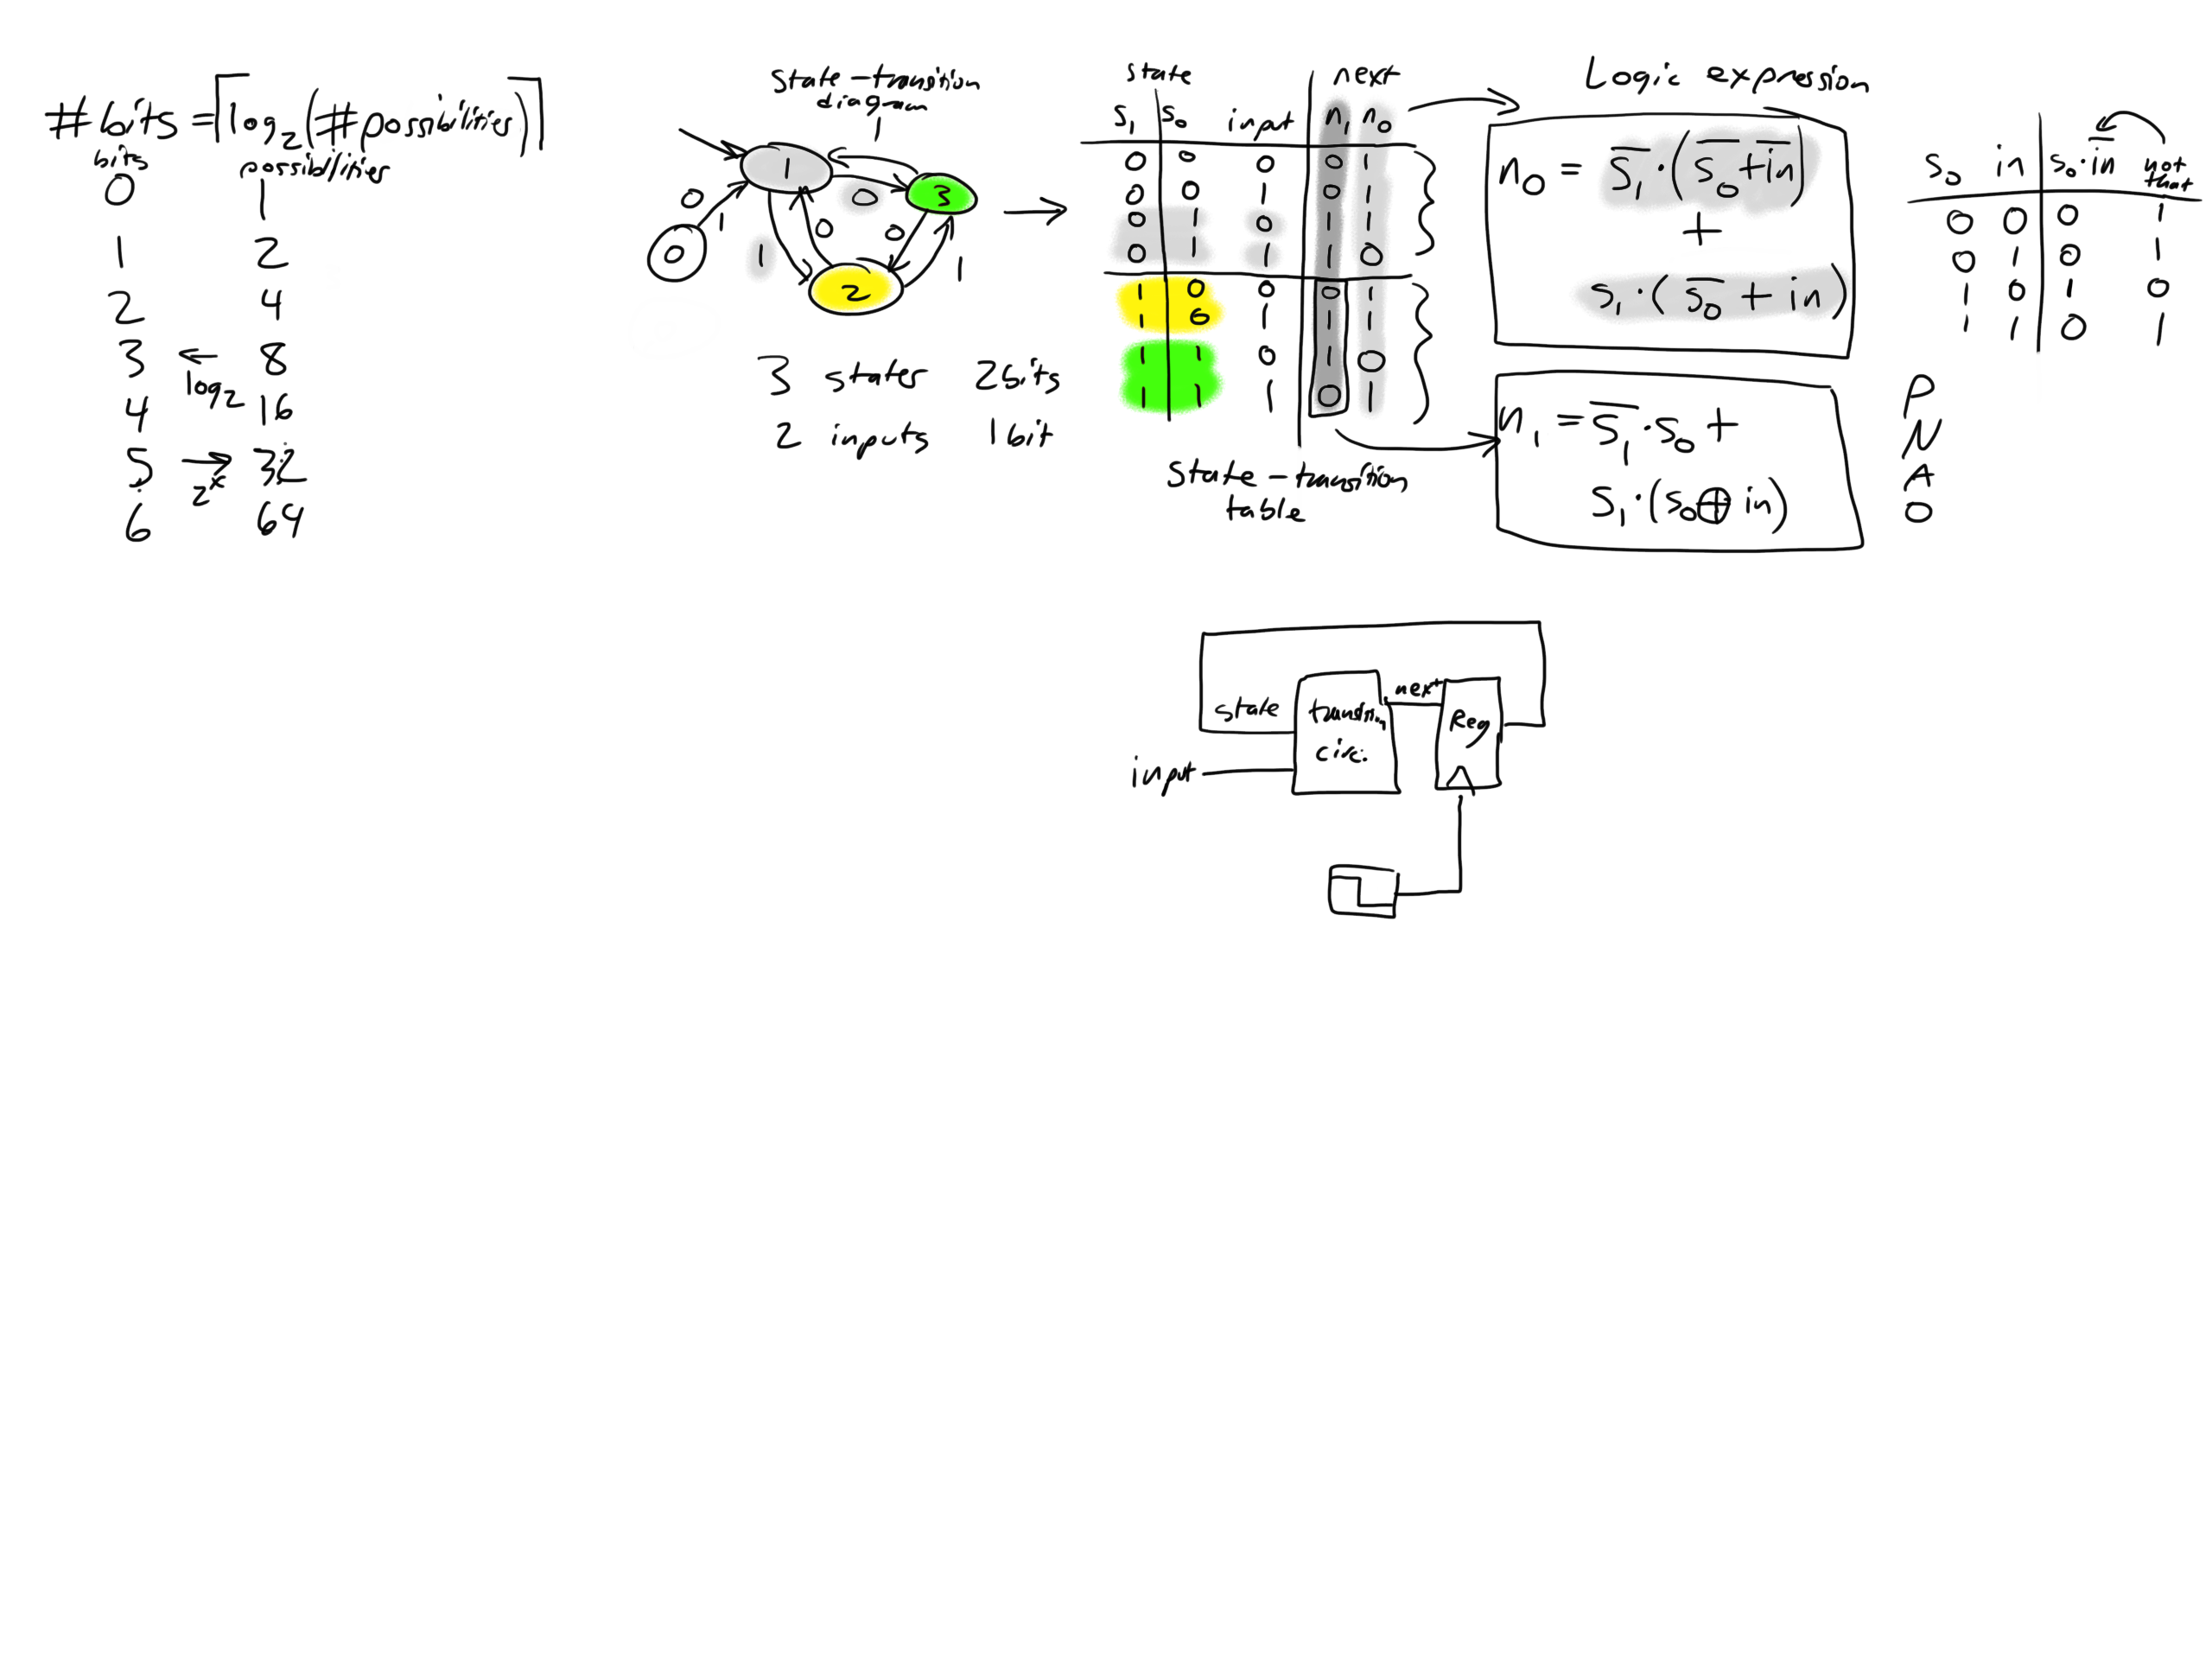 #bits = ⌈log₂(#possibilities)⌉
bits possibilities
0 1
1 2
2 4
3 ← 8
log₂
4 16
5 → 32
2ˣ
6 64
State-transition
diagram
1
1
0
3
0
1
0
1
0
0
2
1
3 states 2bits
2 inputs 1bit
state next
S₁ S₀ input n₁ n₀
0 0 0 0 1
0 0 1 0 1
0 1 0 1 1
0 1 1 1 0
1 0 0 0 1
1 0 1 1 1
1 1 0 1 0
1 1 1 0 1
State-transition
table
Logic expression
n₀ = S̅₁·(S̅₀+i̅n̅)
+
S₁·(S̅₀ + in)
n₁ = S̅₁·S₀ +
S₁·(S₀⊕in)
P
N
A
O
S₀ in S₀·i̅n̅ not
that
0 0 0 1
0 1 0 1
1 0 1 0
1 1 0 1
state
transition
circ.
next
Reg
input